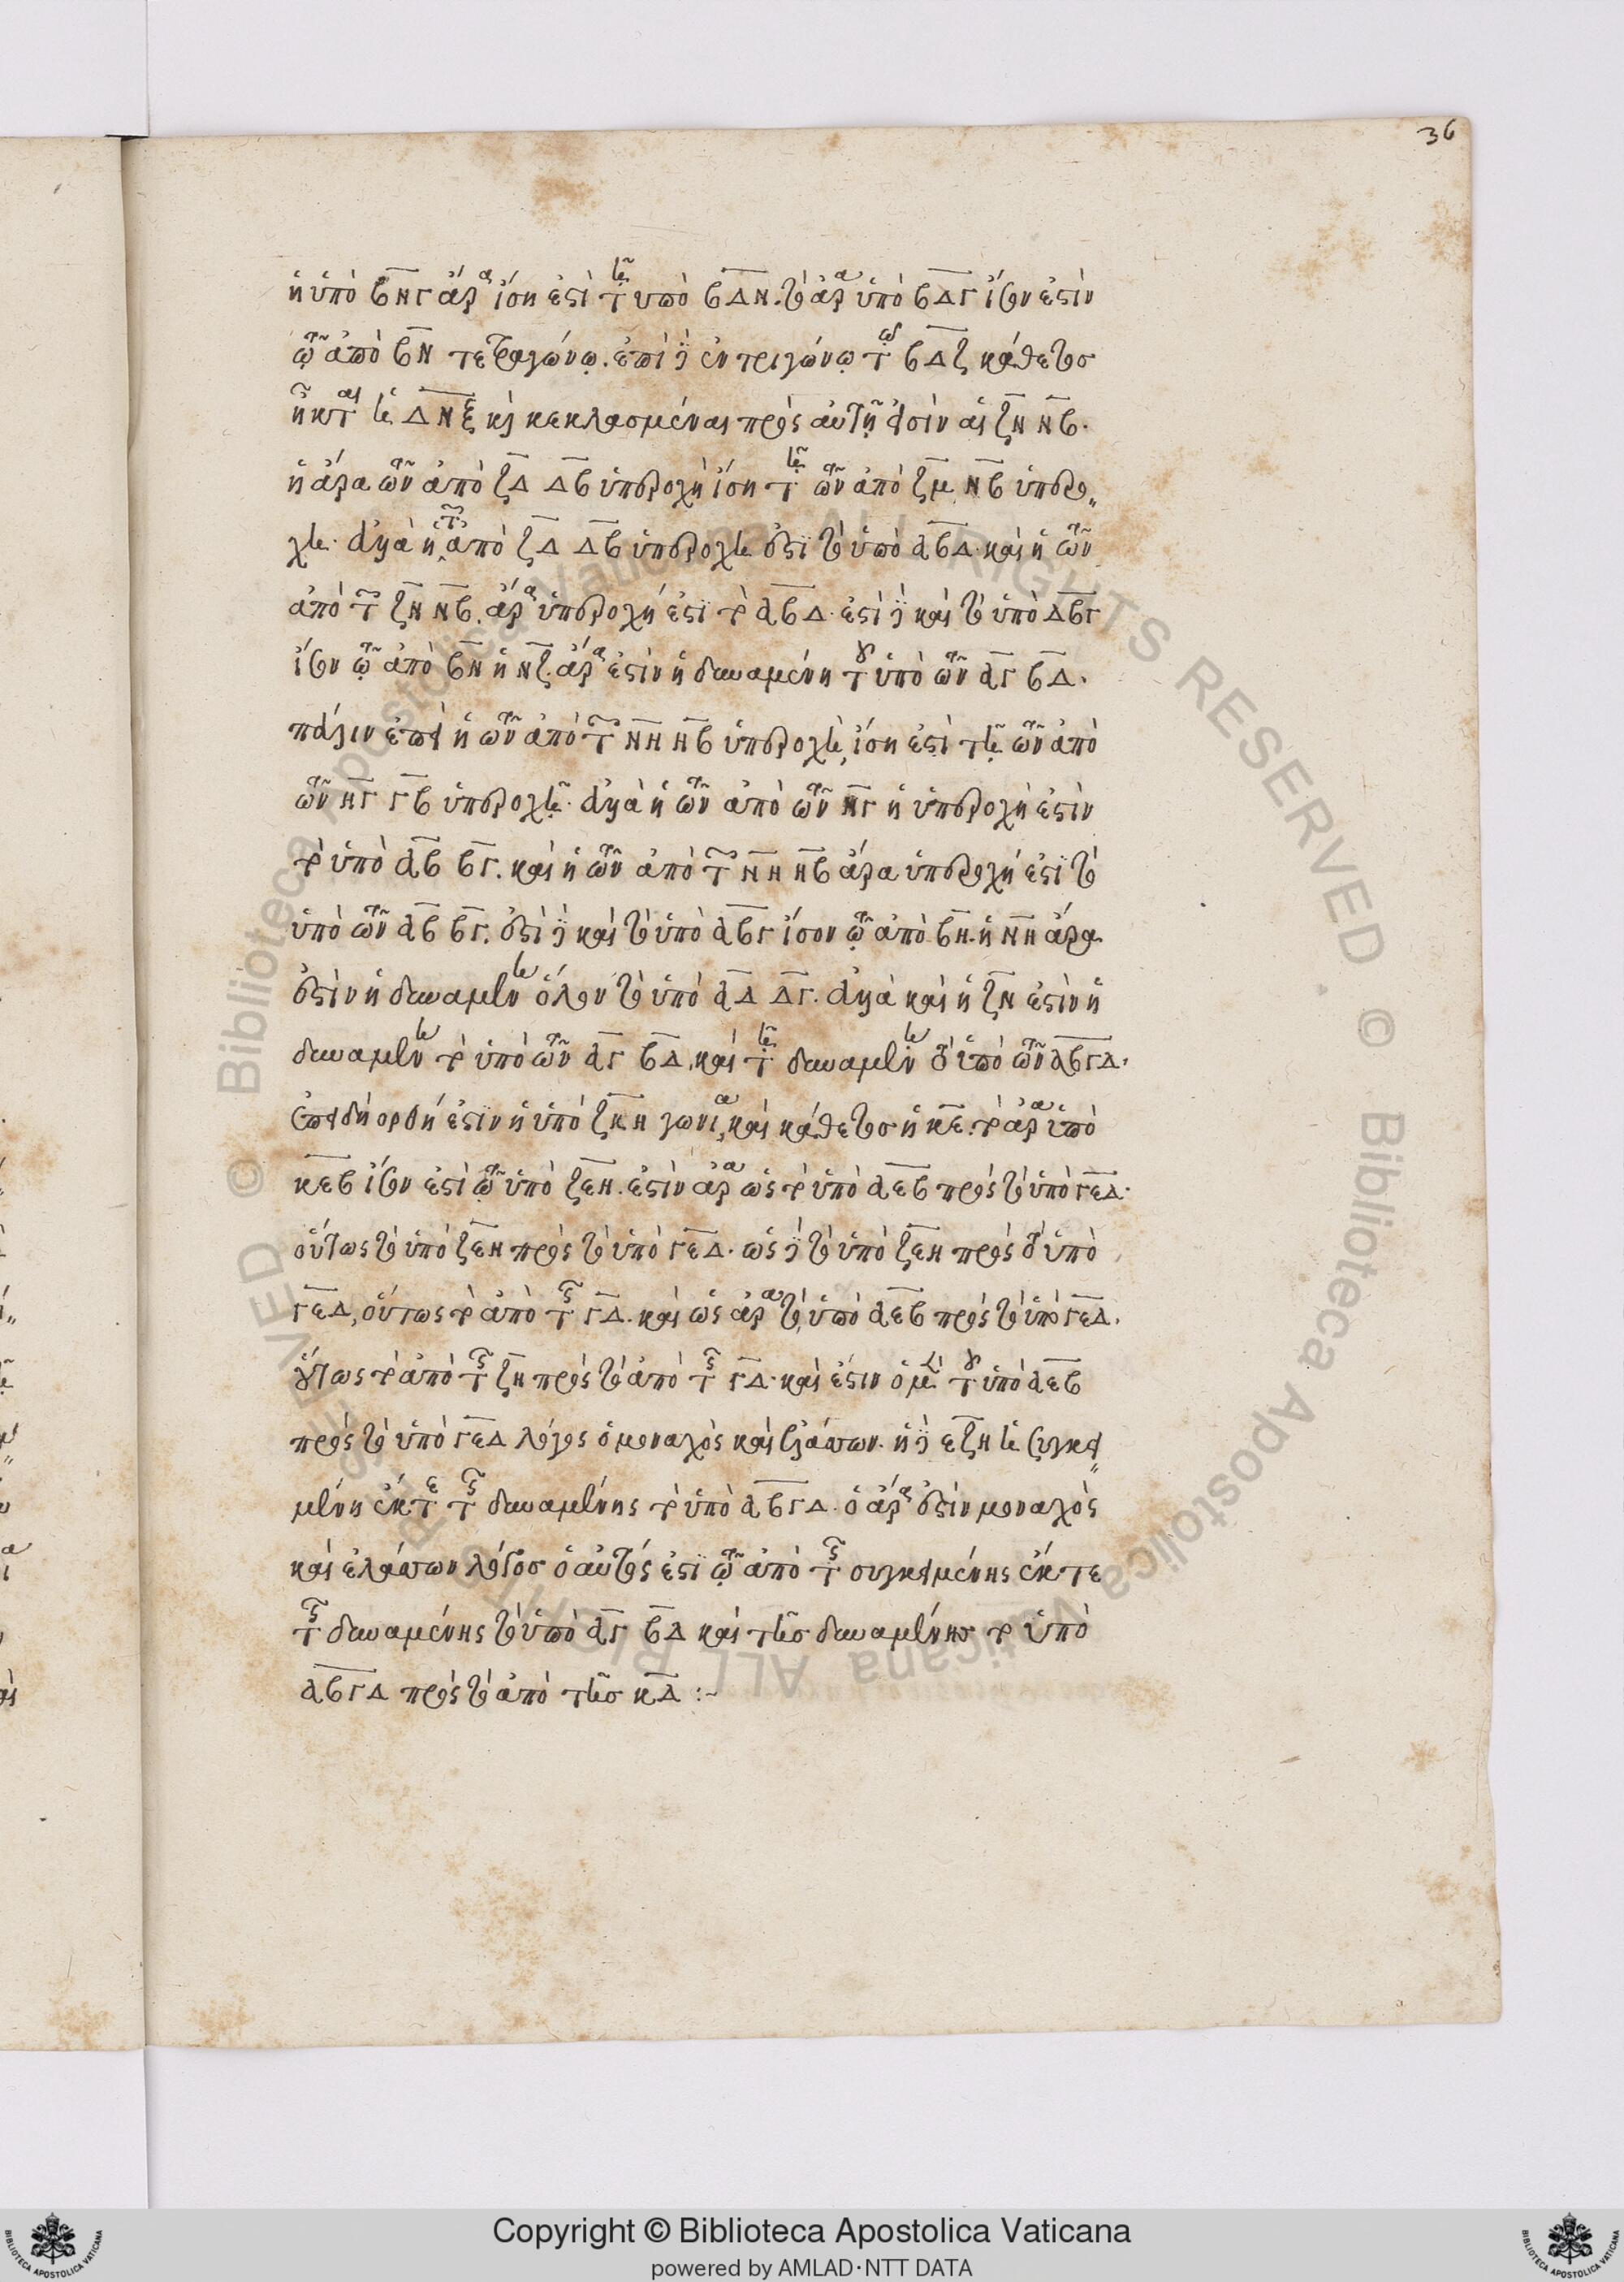 36
ἡ ὑπὸ ΒΗΓ ἄρα ἴση ἐστὶ τῇ ὑπὸ ΒΔΝ. τὸ ἄρα ὑπὸ ΒΔΓ ἴσον ἐστὶν
τῷ ἀπὸ ΒΝ τετραγώνῳ. ἐπεὶ δὲ ἐν τριγώνῳ τῷ ΒΔΖ κάθετος
ἡ ΔΝΞ καὶ κεκλασμέναι πρὸς αὐτῇ εἰσὶν αἱ ΖΝ ΝΒ.
ἡ ἄρα τῶν ἀπὸ ΖΔ ΔΒ ὑπεροχὴ ἴση τῇ τῶν ἀπὸ ΖΜ ΝΒ ὑπερο
χῇ. ἀλλὰ ἡ τῶν ἀπὸ ΖΔ ΔΒ ὑπεροχή ἐστι τὸ ὑπὸ ΑΒΔ. καὶ ἡ τῶν
ἀπὸ τῶν ΖΝ ΝΒ. ἄρα ὑπεροχή ἐστι τὸ ΑΒΔ. ἐστὶ δὲ καὶ τὸ ὑπὸ ΔΒΓ
ἴσον τῷ ἀπὸ ΒΝ ἡ ΝΖ. ἄρα ἐστὶν ἡ δυναμένη τοῦ ὑπὸ τῶν ΑΓ ΒΔ.
πάλιν ἐπεὶ ἡ τῶν ἀπὸ τῶν ΝΗ ΗΒ ὑπεροχὴ, ἴση ἐστὶ τῇ τῶν ἀπὸ
τῶν ΗΓ ΓΒ ὑπεροχῇ. ἀλλὰ ἡ τῶν ἀπὸ τῶν ΗΓ ἡ ὑπεροχὴ ἐστὶν
τὸ ὑπὸ ΑΒ ΒΓ. καὶ ἡ τῶν ἀπὸ τῶν ΝΗ ΗΒ ἄρα ὑπεροχή ἐστι τὸ
ὑπὸ τῶν ΑΒ ΒΓ. ἐστὶ δὲ καὶ τὸ ὑπὸ ΑΒΓ ἴσον τῷ ἀπὸ ΒΗ. ἡ ΝΗ ἄρα
ἐστὶν ἡ δυναμένη ὅλον τὸ ὑπὸ ΑΔ ΔΓ. ἀλλὰ καὶ ἡ ΖΝ ἐστὶν ἡ
δυναμένη τὸ ὑπὸ τῶν ΑΓ ΒΔ. καὶ τῇ δυναμένῃ τὸ ὑπὸ τῶν ΑΒΓΔ.
ἐπειδὴ ὀρθή ἐστιν ἡ ὑπὸ ΖΚΗ γωνία, καὶ κάθετος ἡ ΚΕ. τὸ ἄρα ὑπὸ
ΚΕΒ ἴσον ἐστὶ τῷ ὑπὸ ΖΕΗ. ἐστὶν ἄρα ὡς τὸ ὑπὸ ΑΕΒ πρὸς τὸ ὑπὸ ΓΕΔ.
οὕτως τὸ ὑπὸ ΖΕΗ πρὸς τὸ ὑπὸ ΓΕΔ. ὡς δὲ τὸ ὑπὸ ΖΕΗ πρὸς τὸ ὑπὸ
ΓΕΔ, οὕτως τὸ ἀπὸ τῆς ΓΔ. καὶ ὡς ἄρα τὸ, ὑπὸ ΑΕΒ πρὸς τὸ ὑπὸ ΓΕΔ.
οὕτως τὸ ἀπὸ τῆς ΖΗ πρὸς τὸ ἀπὸ τῆς ΓΔ. καὶ ἔστιν ὁ μὲν τοῦ ὑπὸ ΑΕΒ
πρὸς τὸ ὑπὸ ΓΕΔ λόγος ὁ μοναχὸς καὶ ἐλάττων. ἡ δὲ ΕΖΗ ἡ συγκει
μένη ἐκ τε τῆς δυναμένης τὸ ὑπὸ ΑΒΓΔ. ὁ ἄρα ἐστὶν μοναχὸς
καὶ ἐλάττων λόγος ὁ αὐτός ἐστι τῷ ἀπὸ τῆς συγκειμένης ἐκ τε
τῆς δυναμένης τὸ ὑπὸ ΑΓ ΒΔ καὶ τῆς δυναμένης τὸ ὑπὸ
ΑΒΓΔ πρὸς τὸ ἀπὸ τῆς ΚΔ :~
© Biblioteca Apostolica Vaticana ALL RIGHTS RESERVED
Copyright © Biblioteca Apostolica Vaticana
powered by AMLAD·NTT DATA